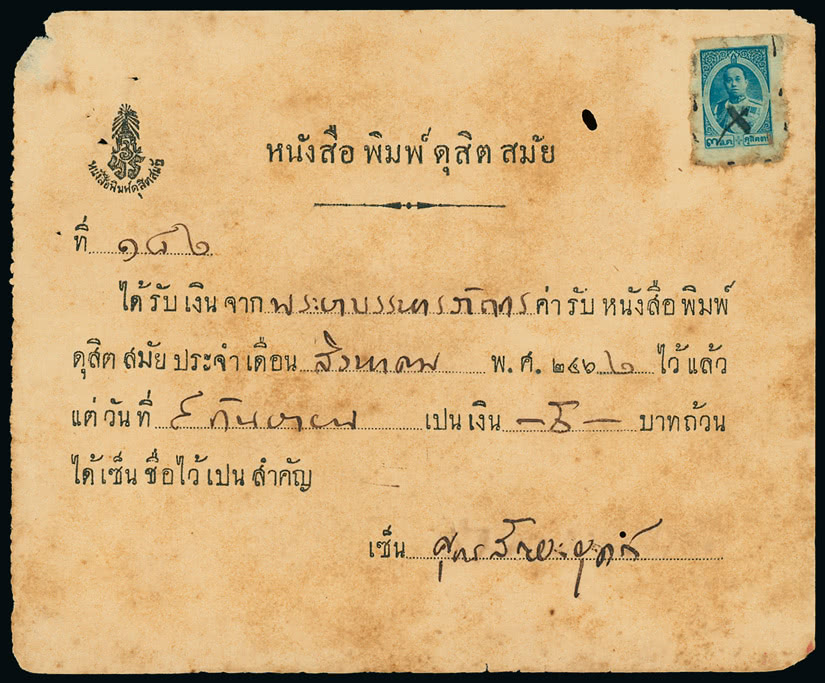 หนังสือพิมพ์ดุสิตสมัย
หนังสือ พิมพ์ ดุสิต สมัย
ที่ ๑๘๒
ได้ รับ เงิน จาก พระยาบรรหารภัณฑาร ค่า รับ หนังสือ พิมพ์
ดุสิต สมัย ประจำ เดือน สิงหาคม พ. ศ. ๒๔๖๒ ไว้ แล้ว
แต่ วัน ที่ ๕ กันยายน เปน เงิน บาทถ้วน
ได้ เซ็น ชื่อ ไว้ เปน สำคัญ
เซ็น